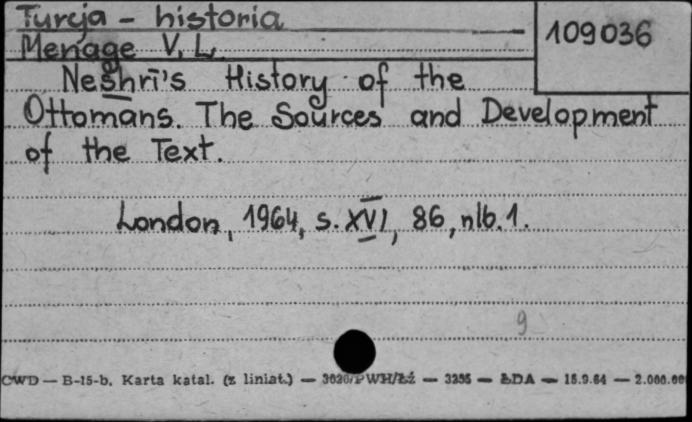 Turcja - historia
109036
Menage V. L.
Neshrī's History of the
Ottomans. The Sources and Development
of the Text.
London, 1964, s. XVI, 86, nlb. 1.
9
CWD — B-15-b. Karta katal. (z liniat.) — 3020/PWH/Łź — 3255 — ŁDA — 18.9.64 — 2.000.00